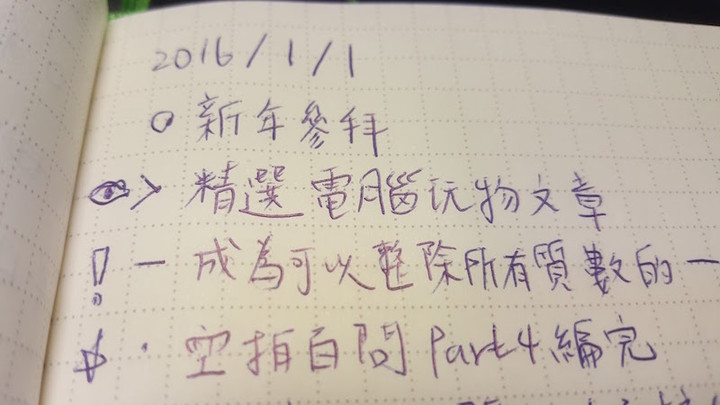 2016/1/1
o 新年參拜
> 精選電腦玩物文章
! — 成為可以整除所有質數的一
· 空拍百問 Part4 編完